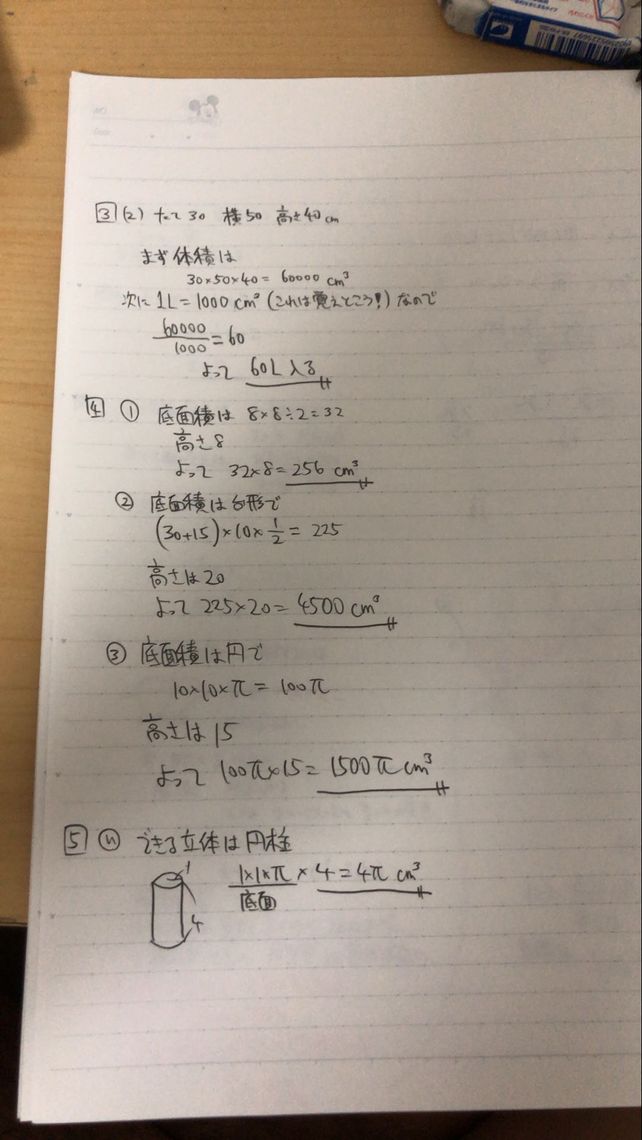 3 (2) たて30 横50 高さ40cm
まず体積は
30×50×40= 60000 cm³
次に 1L=1000 cm³ (これは覚えとこう!) なので
60000/1000=60
よって 60L入る
4 ① 底面積は 8×8÷2=32
高さ8
よって 32×8=256 cm³
② 底面積は台形で
(30+15)×10×1/2= 225
高さは20
よって 225×20= 4500 cm³
③ 底面積は円で
10×10×π= 100π
高さは 15
よって 100π×15= 1500π cm³
5 (1) できる立体は円柱
1
1×1×π × 4=4π cm³
底面
4